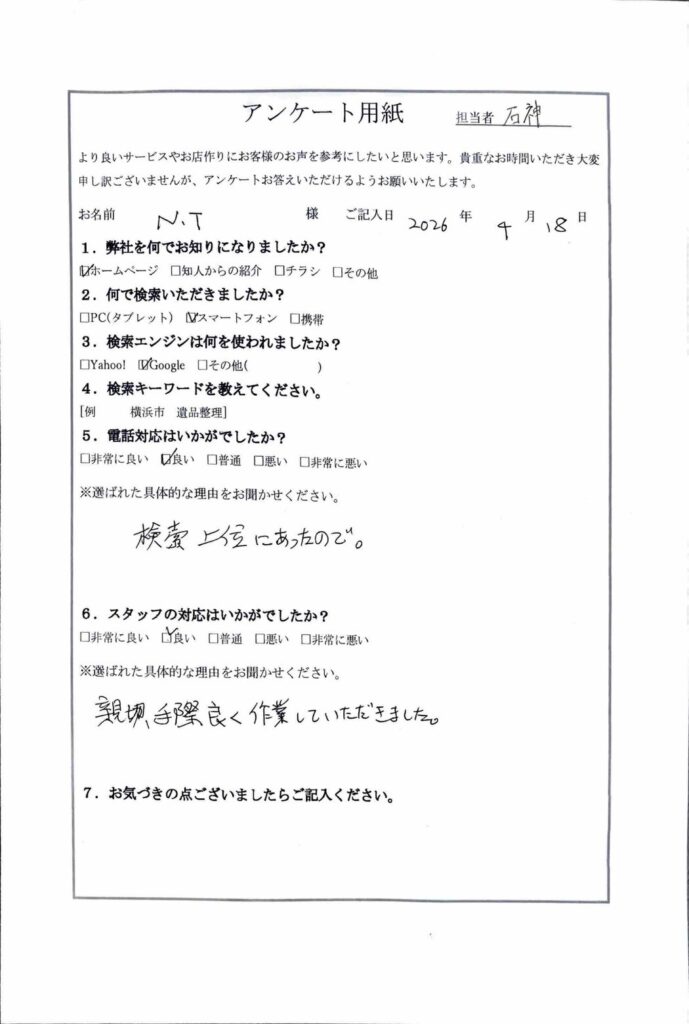 アンケート用紙 担当者 石神
より良いサービスやお店作りにお客様のお声を参考にしたいと思います。貴重なお時間いただき大変
申し訳ございませんが、アンケートお答えいただけるようお願いいたします。
お名前 N.T 様 ご記入日 2026 年 4 月 18 日
1．弊社を何でお知りになりましたか？
☑ホームページ □知人からの紹介 □チラシ □その他
2．何で検索いただきましたか？
□PC(タブレット) ☑スマートフォン □携帯
3．検索エンジンは何を使われましたか？
□Yahoo! ☑Google □その他( )
4．検索キーワードを教えてください。
[例 横浜市 遺品整理]
5．電話対応はいかがでしたか？
□非常に良い ☑良い □普通 □悪い □非常に悪い
※選ばれた具体的な理由をお聞かせください。
検索上位にあったので。
6．スタッフの対応はいかがでしたか？
□非常に良い ☑良い □普通 □悪い □非常に悪い
※選ばれた具体的な理由をお聞かせください。
親切、手際良く作業していただきました。
7．お気づきの点ございましたらご記入ください。